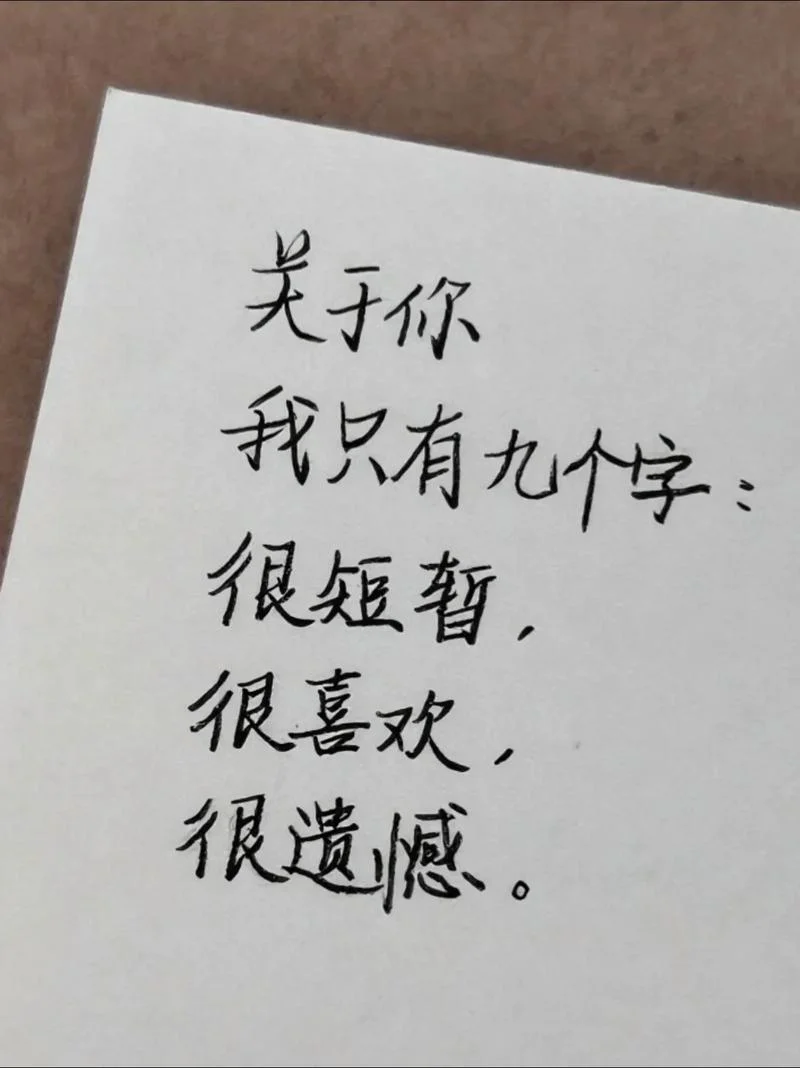 关于你
我只有九个字:
很短暂,
很喜欢,
很遗憾。